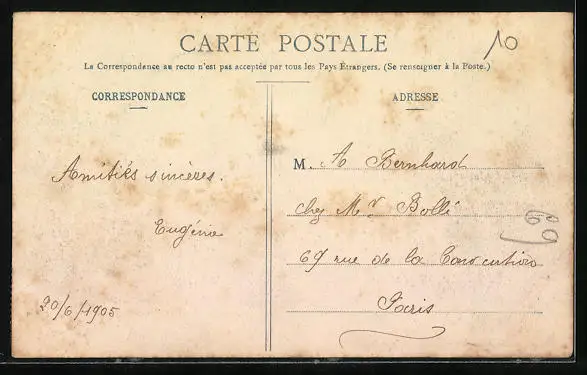 CARTE POSTALE
10
La Correspondance au recto n'est pas acceptée par tous les Pays Etrangers. (Se renseigner à la Poste.)
CORRESPONDANCE
Amitiés sincères.
Eugénie
20/6/1905
ADRESSE
M. A Bernhard
chez Mr Bollé
69 rue de la Convention
Paris